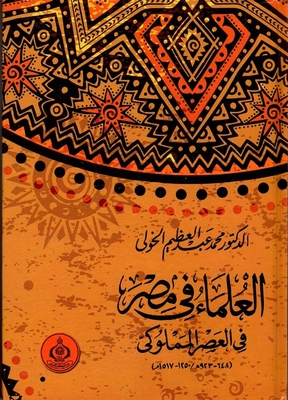 الدكتور محمد عبد العظيم الخولى
العلماء فى مصر
فى العصر المملوكى
(٦٤٨-٩٢٣هـ/١٢٥٠-١٥١٧م)